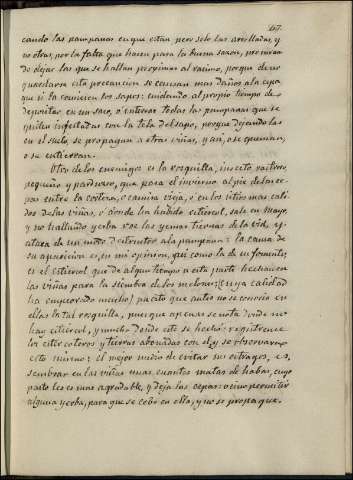 117.
cando las pampanas en que estan pero solo las arrolladas, y
no otras, por la falta que hacen para la buena sazon, procuran
de dejar las que se hallan proximas al racimo, porque de no
guardarse esta precaucion se causan mas daños a la cepa
que si la comieren los sapos: cuidando al propio tiempo de
depositar en un saco, ó enterrar todas las pampanas que se
quiten infestadas con la tela del sapo, porque dejandolas
en el suelo, se propagan a otras viñas, y asi, ó se queman,
ó se entierran.
Otro de los enemigos es la rosquilla, insecto rastrero,
pequeño y pardusco, que pasa el invierno al pie de las ce-
pas entre la corteza, ó camisa vieja, ó en los sitios mas cali-
dos de las viñas, ó donde ha habido estiercol, sale en Mayo,
y no hallando yerba roe las yemas tiernas de la vid, y
ataca de un modo destructor a la pampana: la causa de
su aparicion es, en mi opinion, asi como la de su fomento,
es el estiercol que de algun tiempo a esta parte hechan en
las viñas para la siembra de los melones; (cuya calidad
ha empeorado mucho) puesto que antes no se conocia en
ellas la tal rosquilla, pues que apenas se nota donde no
hay estiercol, y mucho donde este se hecha: registrense
los estercoleros y tierras abonadas con el, y se observara
esto mismo: el mejor medio de evitar sus estragos, es,
sembrar en las viñas unas cuantas matas de habas, cuyo
pasto les es mas agradable, y deja las cepas: ó sino permitir
alguna yerba, para que se cebe en ella, y no se propague.